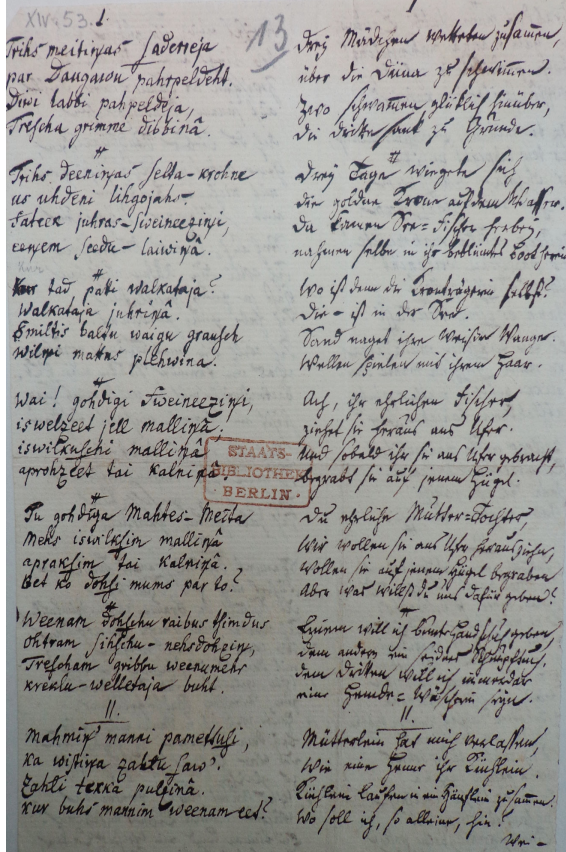 XIV. 53.
1.
13
Trihs meitiņas saderreja
par Daugawu pahrpeldeht.
Diwi labbi pahpeldeja,
Trescha grimme dibbinâ.
#
Trihs deeniņas selta-krohne
us uhdeni lihgojahs.
Atteek juhras-sweineeziņi,
eeņem seedu-laiwiņâ.
#
Kur tad patti walkataja?
Walkataja juhriņâ.
Smiltis baltu waigu grausch
wilņi mattus plehwina.
#
Wai! gohdigi sweineeziņi,
iswelzeet jell malliņâ.
iswilkuschi malliņâ
aprohzeet tai kalniņâ.
#
Tu gohdiga Mahtes-Meita
Mehs iswilksim malliņâ
apraksim tai kalniņâ.
Bet ko dohsi mums par to?
#
Weenam dohschu raibus zimdus
ohtram sihschu-nehsdohziņ,
Trescham gribbu weenumehr
kreklu-welletaja buht.
II.
Mahmiņ' manni pamettusi,
ka wistiņa zahlu saw'.
Zahli tekka pulziņâ.
kur buhs mannim weenam eet?
Drey Mädchen wetteten zusammen,
über die Düna zu schwimmen.
Zwo schwammen glüklich hinüber,
die dritte sank zu Grunde.
#
Drey Tage wiegete sich
die goldne Krone auf dem Wasser.
Da kamen See-Fischer herbey,
nahmen selbe in ihr beblümtes Boot herein
#
Wo ist denn die Kronträgerin selbst?
Die – ist in der See.
Sand naget ihre Weisse Wange.
Wellen spielen mit ihrem Haar.
#
Ach, ihr ehrlichen Fischer,
ziehet sie heraus ans Ufer.
Und sobald ihr sie ans Ufer gebracht,
begrabt sie auf jenem Hügel.
#
Du ehrliche Mutter-Tochter,
Wir wollen sie ans Ufer herausziehn,
wollen sie auf jenem Hügel begraben
Aber was willst du uns dafür geben?
#
Einem will ich bunte Handschuh geben,
dem andern ein seiden Schnupftuch.
dem dritten will ich immerdar
eine Hemde-Wäscherin seyn.
II.
Mütterlein hat mich verlassen,
wie eine Henne ihr Küchlein.
Küchlein laufen in ein Häuflein zusammen.
wo soll ich, so alleine, hin?
Wei-
STAATS-
BIBLIOTHEK
· BERLIN ·